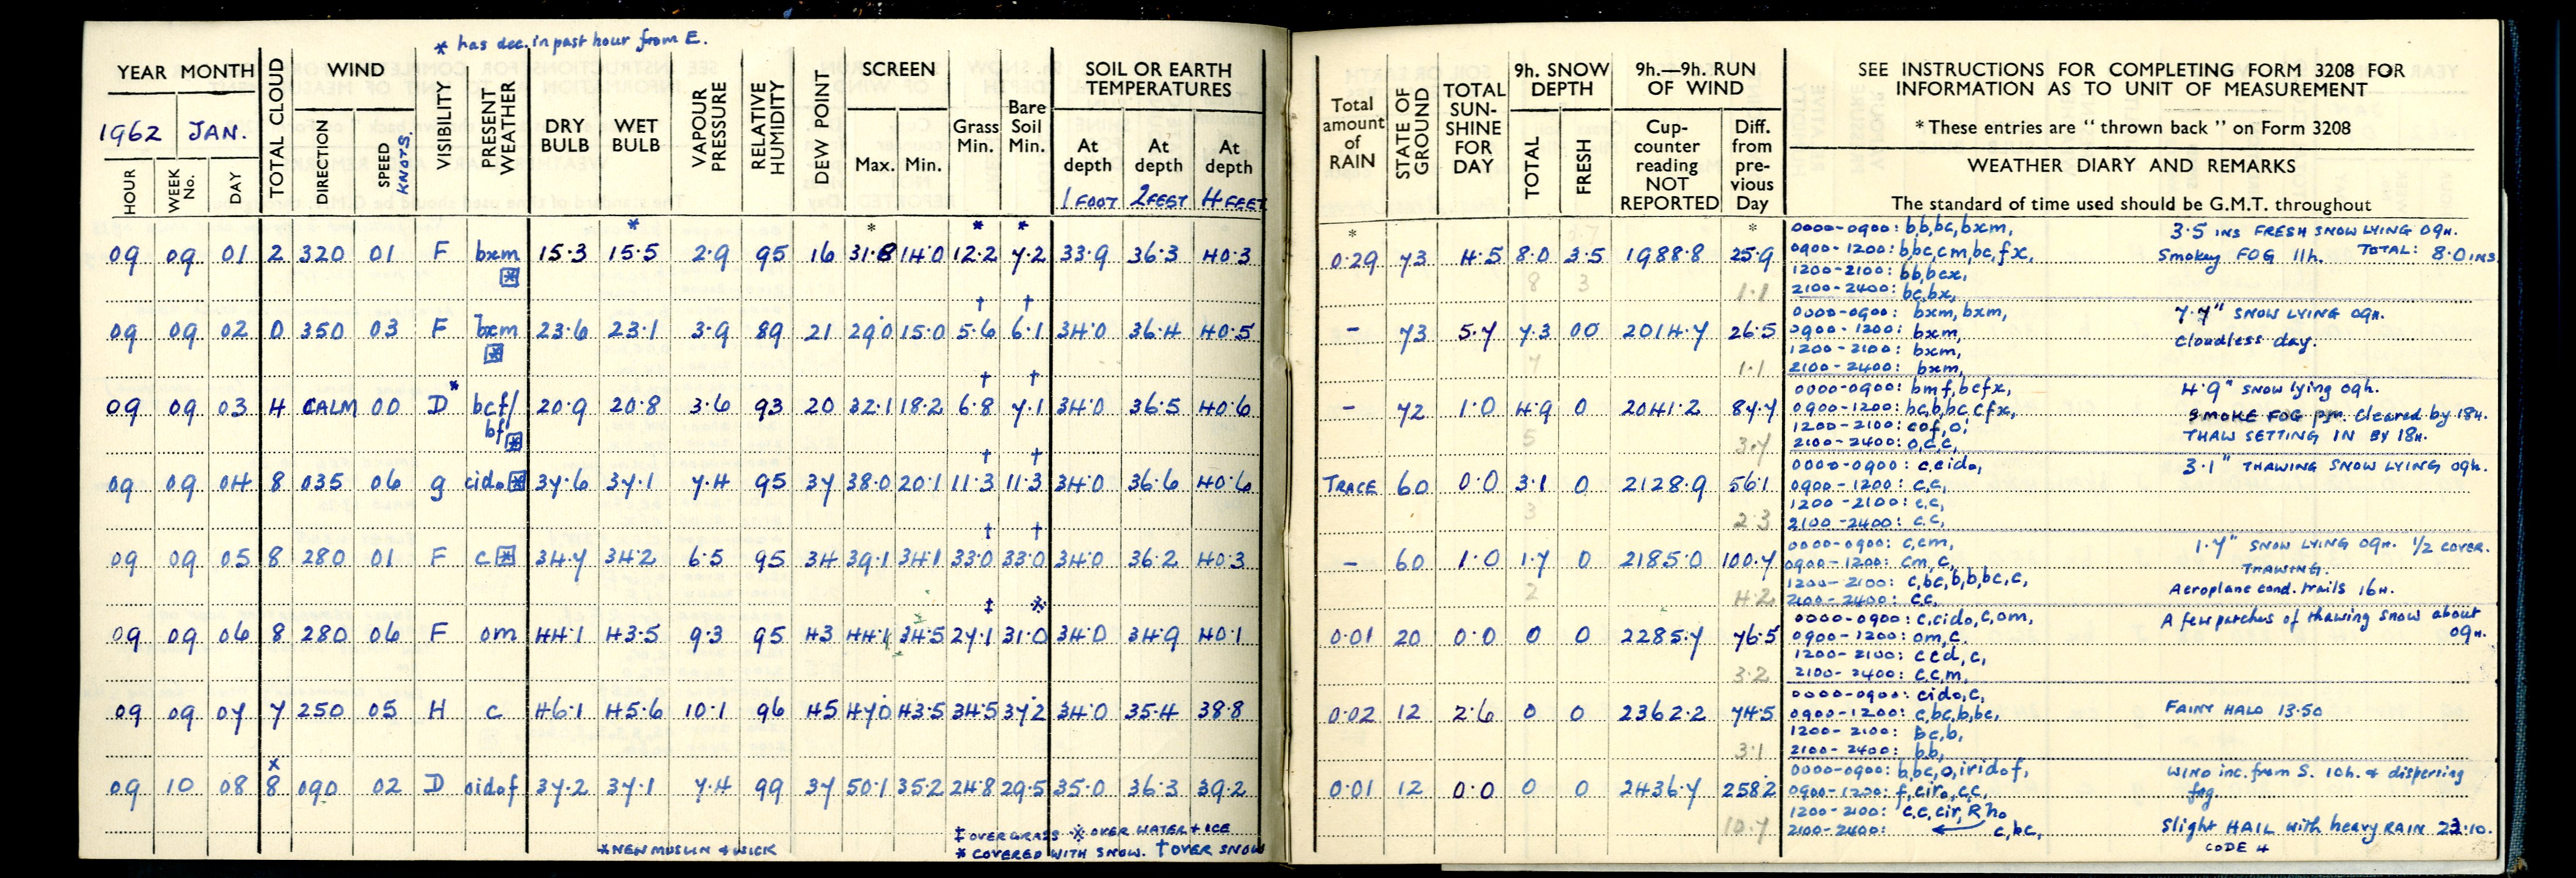 * has dec. in past hour from E.
YEAR MONTH TOTAL CLOUD WIND VISIBILITY PRESENT WEATHER DRY BULB WET BULB VAPOUR PRESSURE RELATIVE HUMIDITY DEW POINT SCREEN SOIL OR EARTH TEMPERATURES
1962 JAN. DIRECTION SPEED KNOTS. Max. Min. Grass Min. Bare Soil Min. At depth At depth At depth
HOUR WEEK No. DAY 1 FOOT 2 FEET 4 FEET
Total amount of RAIN STATE OF GROUND TOTAL SUN-SHINE FOR DAY 9h. SNOW DEPTH TOTAL FRESH 9h.—9h. RUN OF WIND Cup-counter reading NOT REPORTED Diff. from pre-vious Day
SEE INSTRUCTIONS FOR COMPLETING FORM 3208 FOR
INFORMATION AS TO UNIT OF MEASUREMENT
* These entries are “ thrown back ” on Form 3208
WEATHER DIARY AND REMARKS
The standard of time used should be G.M.T. throughout
* * * * * *
09 09 01 2 320 01 F bxm 15·3 15·5 2·9 95 16 31·8 14·0 12·2 7·2 33·9 36·3 40·3 0·29 73 4·5 8·0 3·5 1988·8 25·9
8 3 1·1
0000-0900: b,b,bc,bxm, 3·5 INS FRESH SNOW LYING 09H.
0900-1200: b,bc,cm,bc,fx, Smokey FOG 11h. TOTAL: 8·0 INS.
1200-2100: bb,bcx,
2100-2400: bc,bx,
† †
09 09 02 0 350 03 F bxm 23·6 23·1 3·9 89 21 29·0 15·0 5·6 6·1 34·0 36·4 40·5 - 73 5·7 7·3 00 2014·7 26·5
7 1·1
0000-0900: bxm, bxm, 7·7" SNOW LYING 09H.
0900-1200: bxm, Cloudless day.
1200-2100: bxm,
2100-2400: bxm,
* † †
09 09 03 4 CALM 00 D bcf/bf 20·9 20·8 3·6 93 20 32·1 18·2 6·8 7·1 34·0 36·5 40·6 - 72 1·0 4·9 0 2041·2 87·7
5 3·7
0000-0900: bmf, bcfx, 4·9" SNOW lying 09h.
0900-1200: bc,b,bc,cfx, SMOKE FOG pm. Cleared by 18H.
1200-2100: cof, o, THAW SETTING IN BY 18H.
2100-2400: o,c,c,
† †
09 09 04 8 035 06 g cido 37·6 37·1 7·4 95 37 38·0 20·1 11·3 11·3 34·0 36·6 40·6 TRACE 60 0·0 3·1 0 2128·9 56·1
3 2·3
0000-0900: c,cido, 3·1" THAWING SNOW LYING 09h.
0900-1200: c,c,
1200-2100: c,c,
2100-2400: c,c,
† †
09 09 05 8 280 01 F c 34·7 34·2 6·5 95 34 39·1 34·1 33·0 33·0 34·0 36·2 40·3 - 60 1·0 1·7 0 2185·0 100·7
2 4·2
0000-0900: c,cm, 1·7" SNOW LYING 09H. 1/2 COVER.
0900-1200: cm, c, THAWING.
1200-2100: c,bc,b,b,bc,c, Aeroplane cond. trails 16H.
2100-2400: c,c,
‡ ※
09 09 06 8 280 06 F om 44·1 43·5 9·3 95 43 44·1 34·5 27·1 31·0 34·0 34·9 40·1 0·01 20 0·0 0 0 2285·7 76·5
3·2
0000-0900: c,cido,c,om, A few patches of thawing snow about
0900-1200: om,c. 09H.
1200-2100: ccd, c,
2100-2400: c,c,m,
09 09 07 7 250 05 H c 46·1 45·6 10·1 96 45 47·0 43·5 34·5 37·2 34·0 35·4 38·8 0·02 12 2·6 0 0 2362·2 74·5
3·1
0000-0900: cido,c,
0900-1200: c,bc,b,bc, FAINT HALO 13·50
1200-2100: bc,b,
2100-2400: bb,
x
09 10 08 8 090 02 D oidof 37·2 37·1 7·4 99 37 50·1 35·2 24·8 29·5 35·0 36·3 39·2 0·01 12 0·0 0 0 2436·7 258·2
10·7
0000-0900: b,bc,o,iridof, WIND inc. from S. 10h. & dispersing
0900-1200: f,ciro,c,c, fog.
1200-2100: c,c,cir,R,ho
2100-2400: c,bc, Slight HAIL with heavy RAIN 22·10.
CODE 4
‡ OVER GRASS ※ OVER WATER + ICE
* NEW MUSLIN & WICK * COVERED WITH SNOW. † OVER SNOW